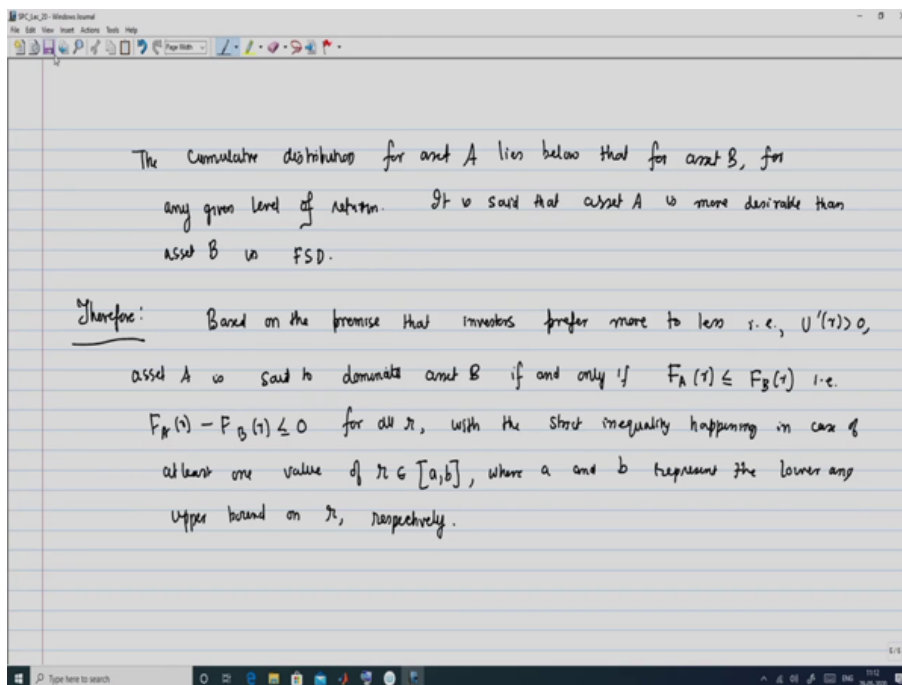 SPC_Lec_20 - Windows Journal
File Edit View Insert Actions Tools Help
Page Width
The cumulative distribution for asset A lies below that for asset B, for
any given level of return. It is said that asset A is more desirable than
asset B in FSD.
Therefore: Based on the premise that investors prefer more to less i.e., U'(r)>0,
asset A is said to dominate asset B if and only if F_A(r) ≤ F_B(r) i.e.
F_A(r) - F_B(r) ≤ 0 for all r, with the strict inequality happening in case of
atleast one value of r ∈ [a,b], where a and b represent the lower and
upper bound on r, respectively.
Type here to search
ENG
11:12